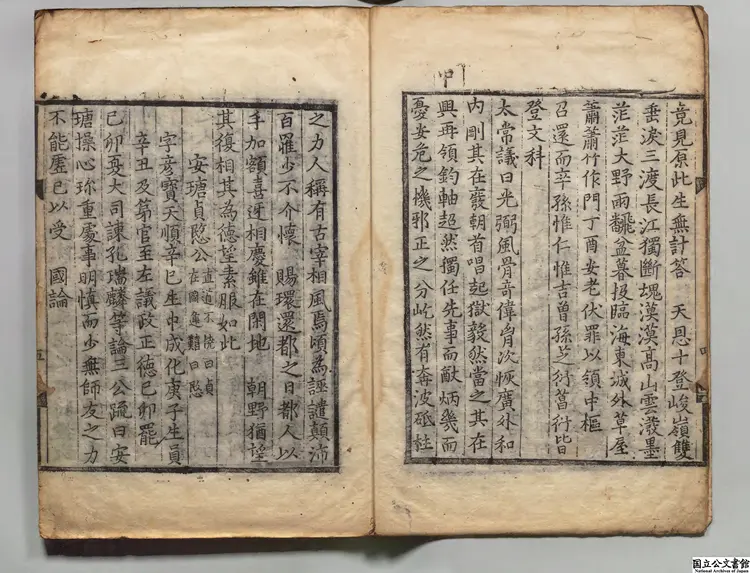 竟見原此生無計答　天恩十登峻嶺雙
垂淚三渡長江獨斷魂漠漠高山雲潑墨
茫茫大野雨飜盆暮投臨海東城外草屋
蕭蕭竹作門丁酉安老伏罪以領中樞
召還而卒孫惟仁惟吉曾孫芝衍菖衍皆
登文科
太常議曰光弼風骨奇偉胷次恢廣外和
內剛其在廢朝首唱起獄毅然當之其在
興再領鈞軸超然獨任先事而猷炳幾而
憂安危之機邪正之分屹然有奔波砥柱
之力人稱有古宰相風焉頃為誣讒顛沛
百罹少不介懷　賜環還都之日都人以
手加額喜迓相慶雖在閑地　朝野猶望
其復相其為德望素服如此
安瑭貞愍公 直道不撓曰貞
在國逢艱曰愍
字彥寶天順辛巳生中成化庚子生員
辛丑及第官至左議政正德己卯罷
己卯憂大司諫孔瑞麟等論三公疏曰安
瑭操心珎重處事明慎而少無師友之力
不能虛己以受　國論
国立公文書館
National Archives of Japan